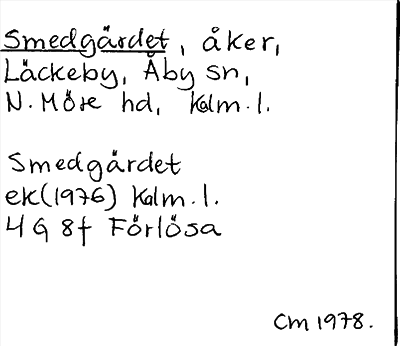 Smedgärdet, åker,
Läckeby, Åby sn,
N. Möre hd, Kalm. l.
Smedgärdet
ek (1976) Kalm. l.
4 G 8f Förlösa
CM 1978.